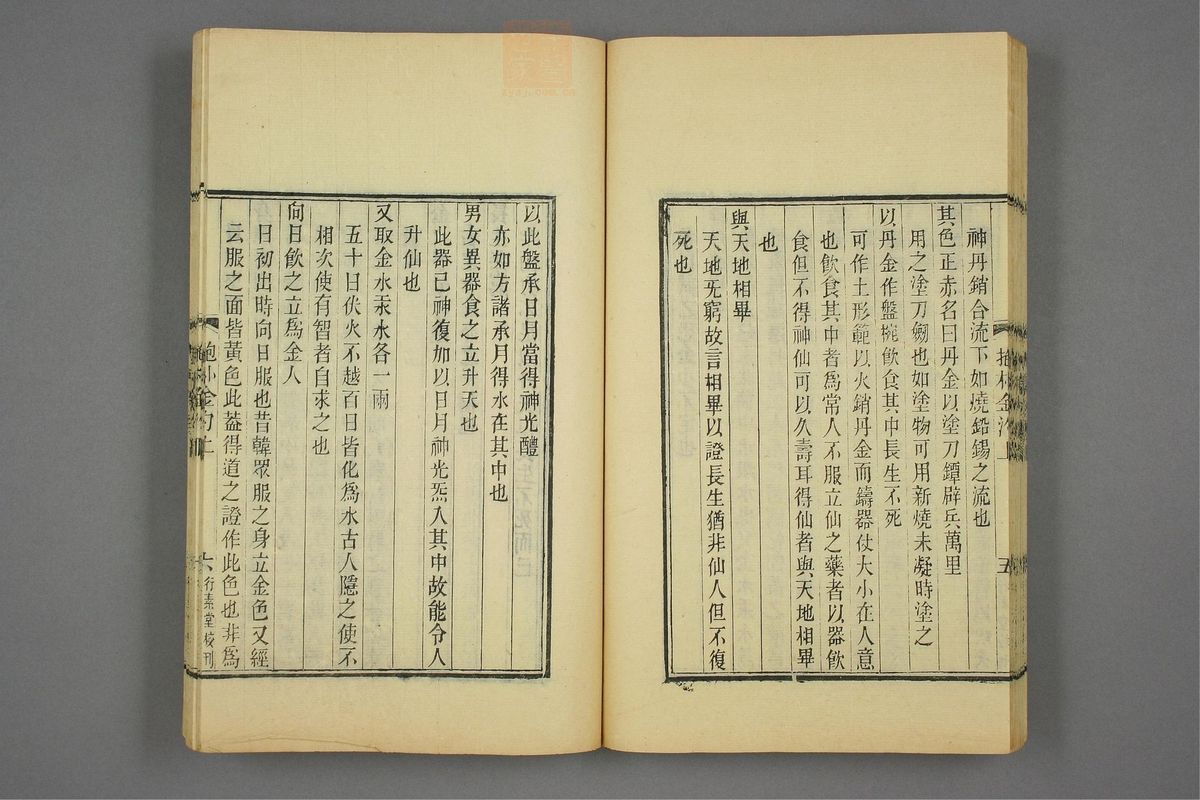 神丹銷合流下如燒鉛錫之流也
其色正赤名曰丹金以塗刀鐔辟兵萬里
用之塗刀劒也如塗物可用新燒未凝時塗之
以丹金作盤椀飲食其中長生不死
可作土形範以火銷丹金而鑄器仗大小在人意
也飲食其中者爲常人不服立仙之藥者以器飲
食但不得神仙可以久壽耳得仙者與天地相畢
也
與天地相畢
天地无窮故言相畢以證長生猶非仙人但不復
死也
五
以此盤承日月當得神光醴
亦如方諸承月得水在其中也
男女異器食之立升天也
此器已神復加以日月神光炁入其中故能令人
升仙也
又取金水汞水各一兩
五十日伏火不越百日皆化爲水古人隱之使不
相次使有智者自求之也
向日飲之立爲金人
日初出時向日服也昔韓眾服之身立金色又經
云服之面皆黃色此葢得道之證作此色也非爲
六
行素堂校刊